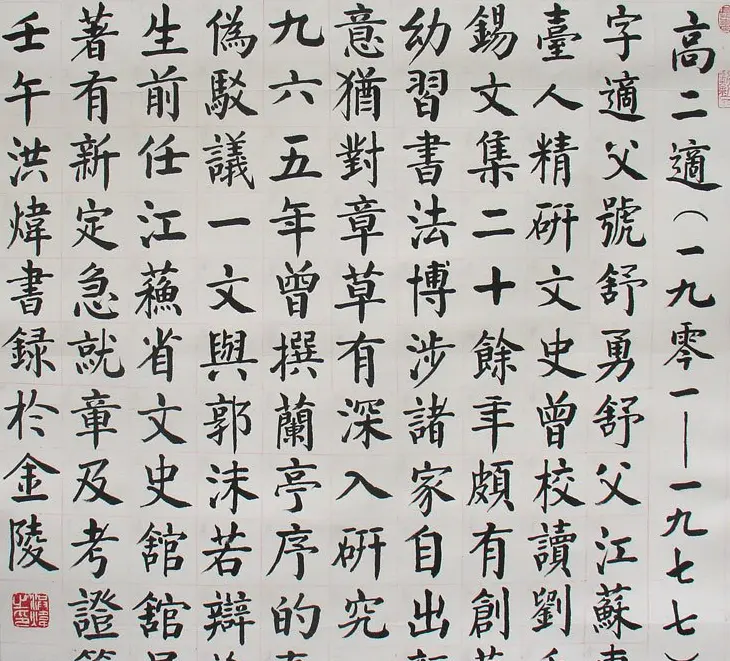 高二適（一九零一—一九七七）
字適父號舒勇舒父江蘇
臺人精研文史曾校讀劉
錫文集二十餘年頗有創
幼習書法博涉諸家自出
意猶對章草有深入研究
九六五年曾撰蘭亭序的
偽駁議一文與郭沫若辯
生前任江蘇省文史館館
著有新定急就章及考證
壬午洪煒書録於金陵